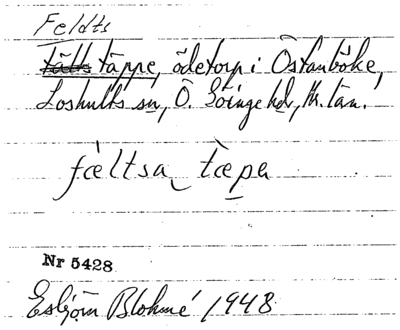 Feldts
Fälts täppe, ödetorp i Östanböke,
Loshults sn, Ö. Göinge hd, Kr. län.
fœltsa tœpa
Nr 5428
Esbjörn Blohmé 1948